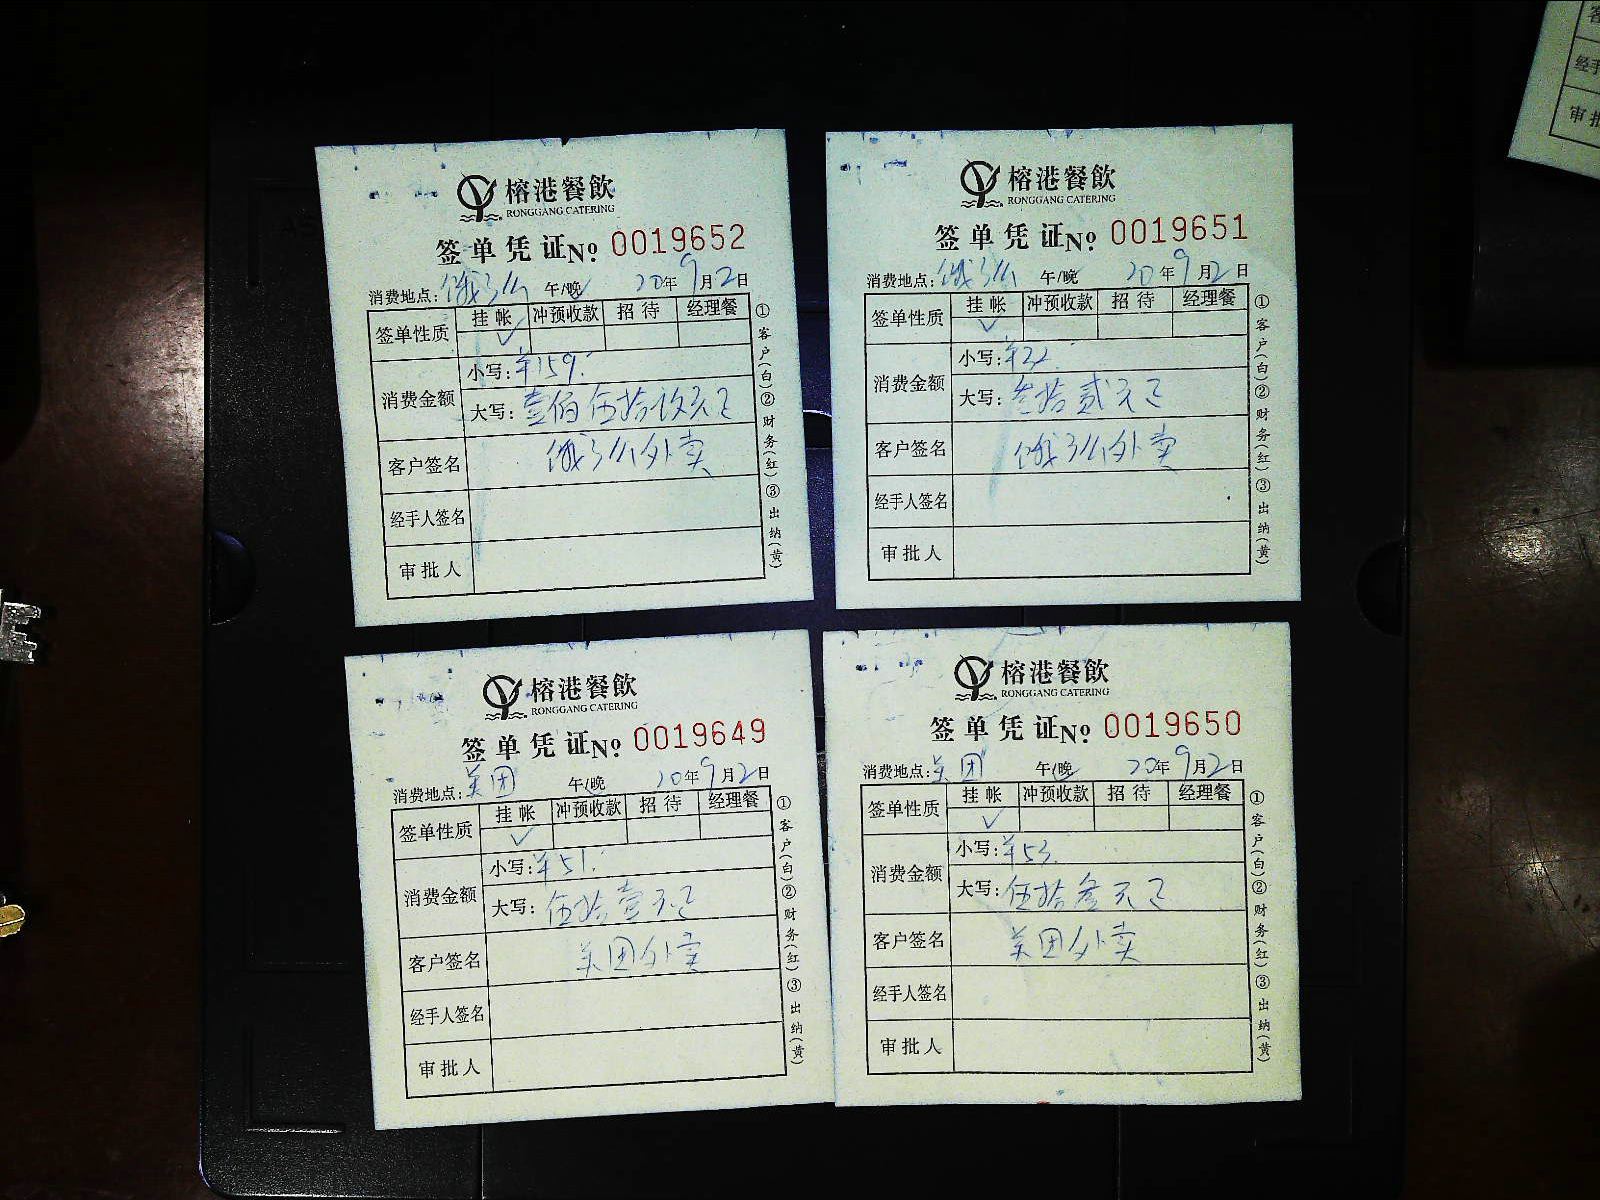 榕港餐飲
RONGGANG CATERING
签单凭证 No 0019652
消费地点：饿了么 午/晚 20年9月2日
签单性质 挂帐 冲预收款 招待 经理餐
✓
消费金额 小写：¥159.
大写：壹佰伍拾玖元正
客户签名 饿了么外卖
经手人签名
审批人
①客户(白)②财务(红)③出纳(黄)
榕港餐飲
RONGGANG CATERING
签单凭证 No 0019651
消费地点：饿了么 午/晚 20年9月2日
签单性质 挂帐 冲预收款 招待 经理餐
✓
消费金额 小写：¥32.
大写：叁拾贰元正
客户签名 饿了么外卖
经手人签名
审批人
①客户(白)②财务(红)③出纳(黄)
榕港餐飲
RONGGANG CATERING
签单凭证 No 0019649
消费地点：美团 午/晚 20年9月2日
签单性质 挂帐 冲预收款 招待 经理餐
✓
消费金额 小写：¥51.
大写：伍拾壹元正
客户签名 美团外卖
经手人签名
审批人
①客户(白)②财务(红)③出纳(黄)
榕港餐飲
RONGGANG CATERING
签单凭证 No 0019650
消费地点：美团 午/晚 20年9月2日
签单性质 挂帐 冲预收款 招待 经理餐
✓
消费金额 小写：¥53.
大写：伍拾叁元正
客户签名 美团外卖
经手人签名
审批人
①客户(白)②财务(红)③出纳(黄)
客
经手
审批